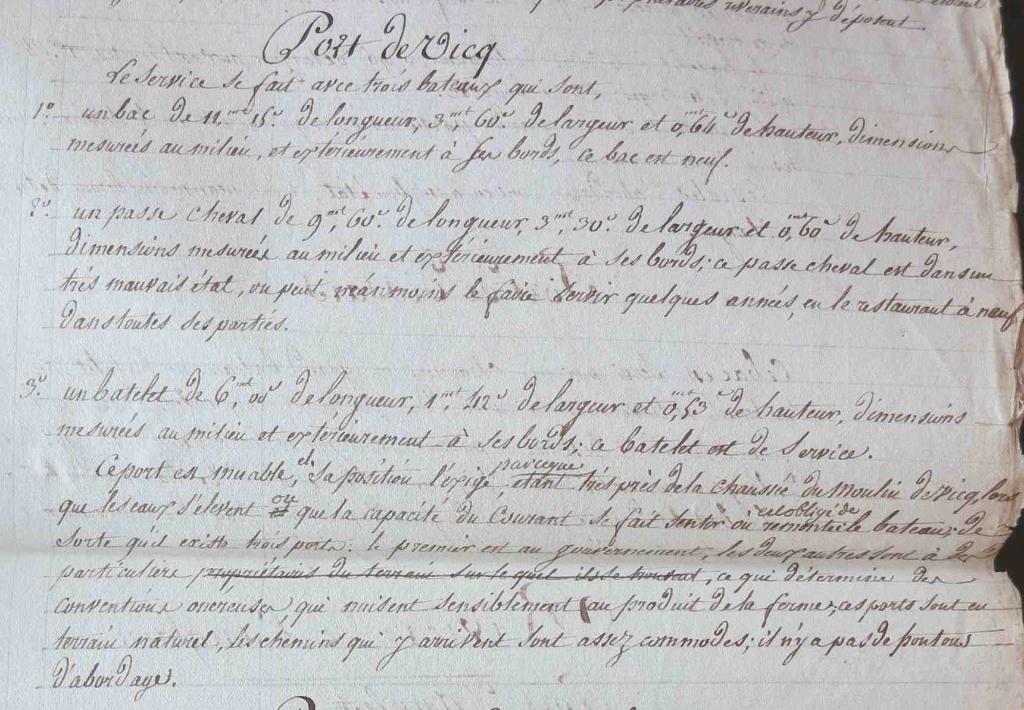 riverains y déposent
Port de Vicq
Le service se fait avec trois bateaux qui sont,
1° un bac de 11,mt 15c. de longueur, 3,mt 60c. de largeur et 0,mt 64c de hauteur, dimensions
mesurées au milieu, et extérieurement à ses bords, ce bac est neuf.
2° un passe cheval de 9mt, 60c. de longueur, 3mt, 30c. de largeur et 0,mt 60c de hauteur,
dimensions mesurées au milieu et extérieurement à ses bords; ce passe cheval est dans un
trés mauvais état, on peut néanmoins le faire servir quelques années, en le restaurant à neuf
dans toutes ses parties.
3° un batelet de 6,mt 00c de longueur, 1mt, 42c de largeur et 0,mt 53c de hauteur, dimensions
mesurées au milieu et extérieurement à ses bords; ce batelet est de service.
Ce port est muable, et sa position l'exige, parceque etant trés près de la chaussée du Moulin de vicq, lors
que les eaux s'élevent ou que la capacité du Courant se fait sentir on est obligé de remonter le bateau; de
sorte qu'il existe trois ports: le premier est au gouvernement, les deux autres sont à des
particuliers propriétaires du terrain sur lequel ils se trouvent, ce qui détermine des
conventions onereuses, qui nuisent sensiblement au produit de la ferme; ces ports sont en
terrain naturel, les chemins qui y arrivent sont assez commodes; il n'y a pas de pontons
d'abordage.